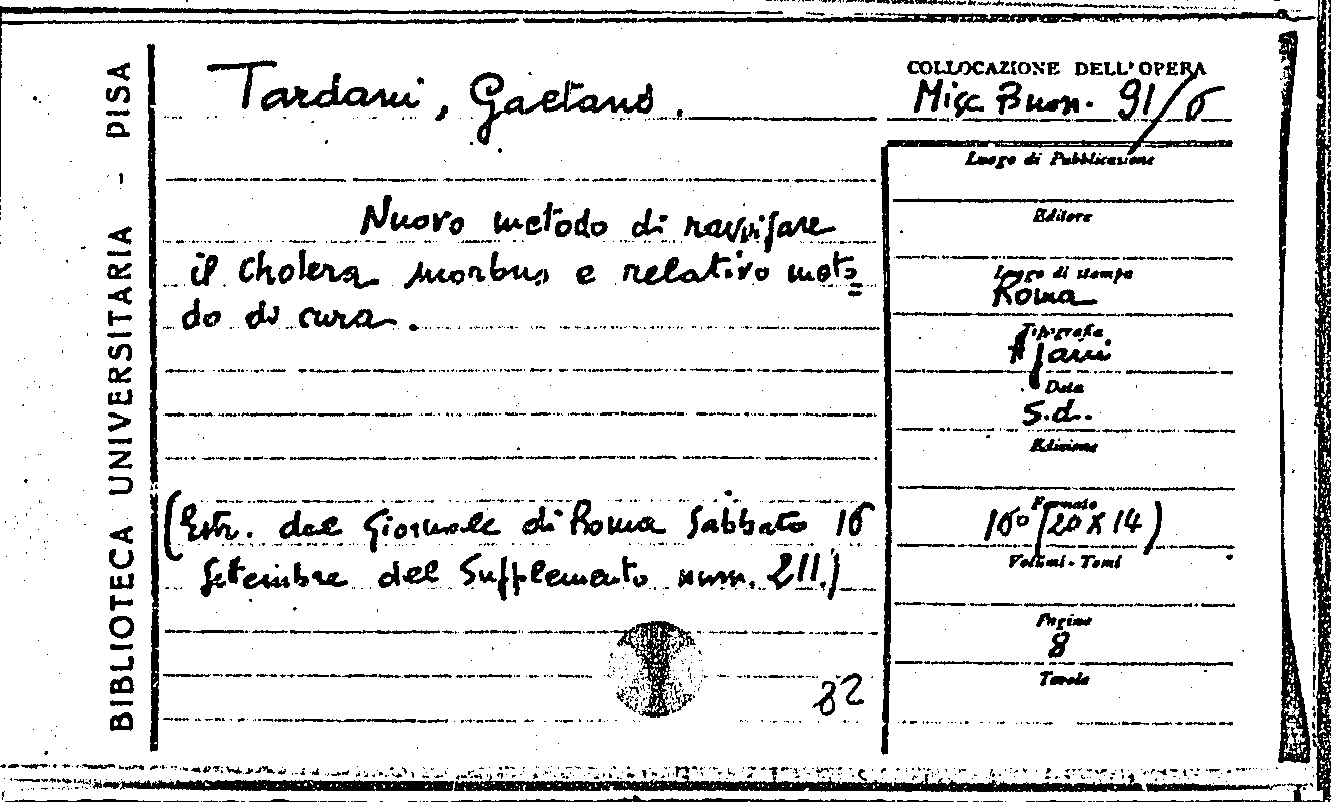 BIBLIOTECA UNIVERSITARIA - PISA
Tardani, Gaetano.
Nuovo metodo di ravvisare
il Cholera morbus e relativo meto=
do di cura.
(Estr. dal Giornale di Roma Sabbato 16
Settembre del Supplemento num. 211.)
82
COLLOCAZIONE DELL'OPERA
Misc. Buon. 91/6
Luogo di Pubblicazione
Editore
Luogo di stampa
Roma
Tipografia
Ajani
Data
s.d.
Edizione
Formato
16° (20 x 14)
Volumi - Tomi
Pagine
8
Tavole